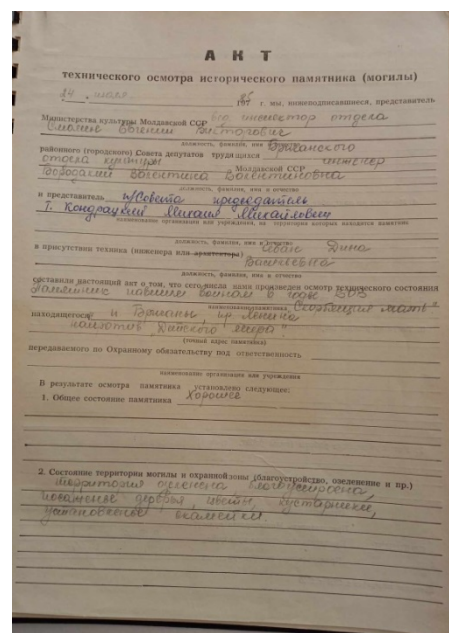 АКТ
технического осмотра исторического памятника (могилы)
г. мы, нижеподписавшиеся, представитель
Министерства культуры Молдавской ССР инспектор отдела
Евгений Викторович
должность, фамилия, имя и отчество
районного (городского) Совета депутатов трудящихся
отдела культуры Молдавской ССР инженер
Валентина Валентиновна
должность, фамилия, имя и отчество
и представитель п/Совета председатель
т. Кондрацкий Михаил Михайлович
наименование организации или учреждения, на территории которых находится памятник
должность, фамилия, имя и отчество
в присутствии техника (инженера или архитектора) Дина
должность, фамилия, имя и отчество
составили настоящий акт о том, что сего числа нами произведен осмотр технического состояния
Памятник павшим воинам в годы ВОВ
наименование памятника „Скорбящая мать"
находящегося Ленина
напротив Детского мира"
(точный адрес памятника)
передаваемого по Охранному обязательству под ответственность
наименование организации или учреждения
В результате осмотра памятника установлено следующее:
1. Общее состояние памятника Хорошее
2. Состояние территории могилы и охранной зоны (благоустройство, озеленение и пр.)
территория озеленена благоустроена,
деревья, цветы, кустарники,
скамейки.